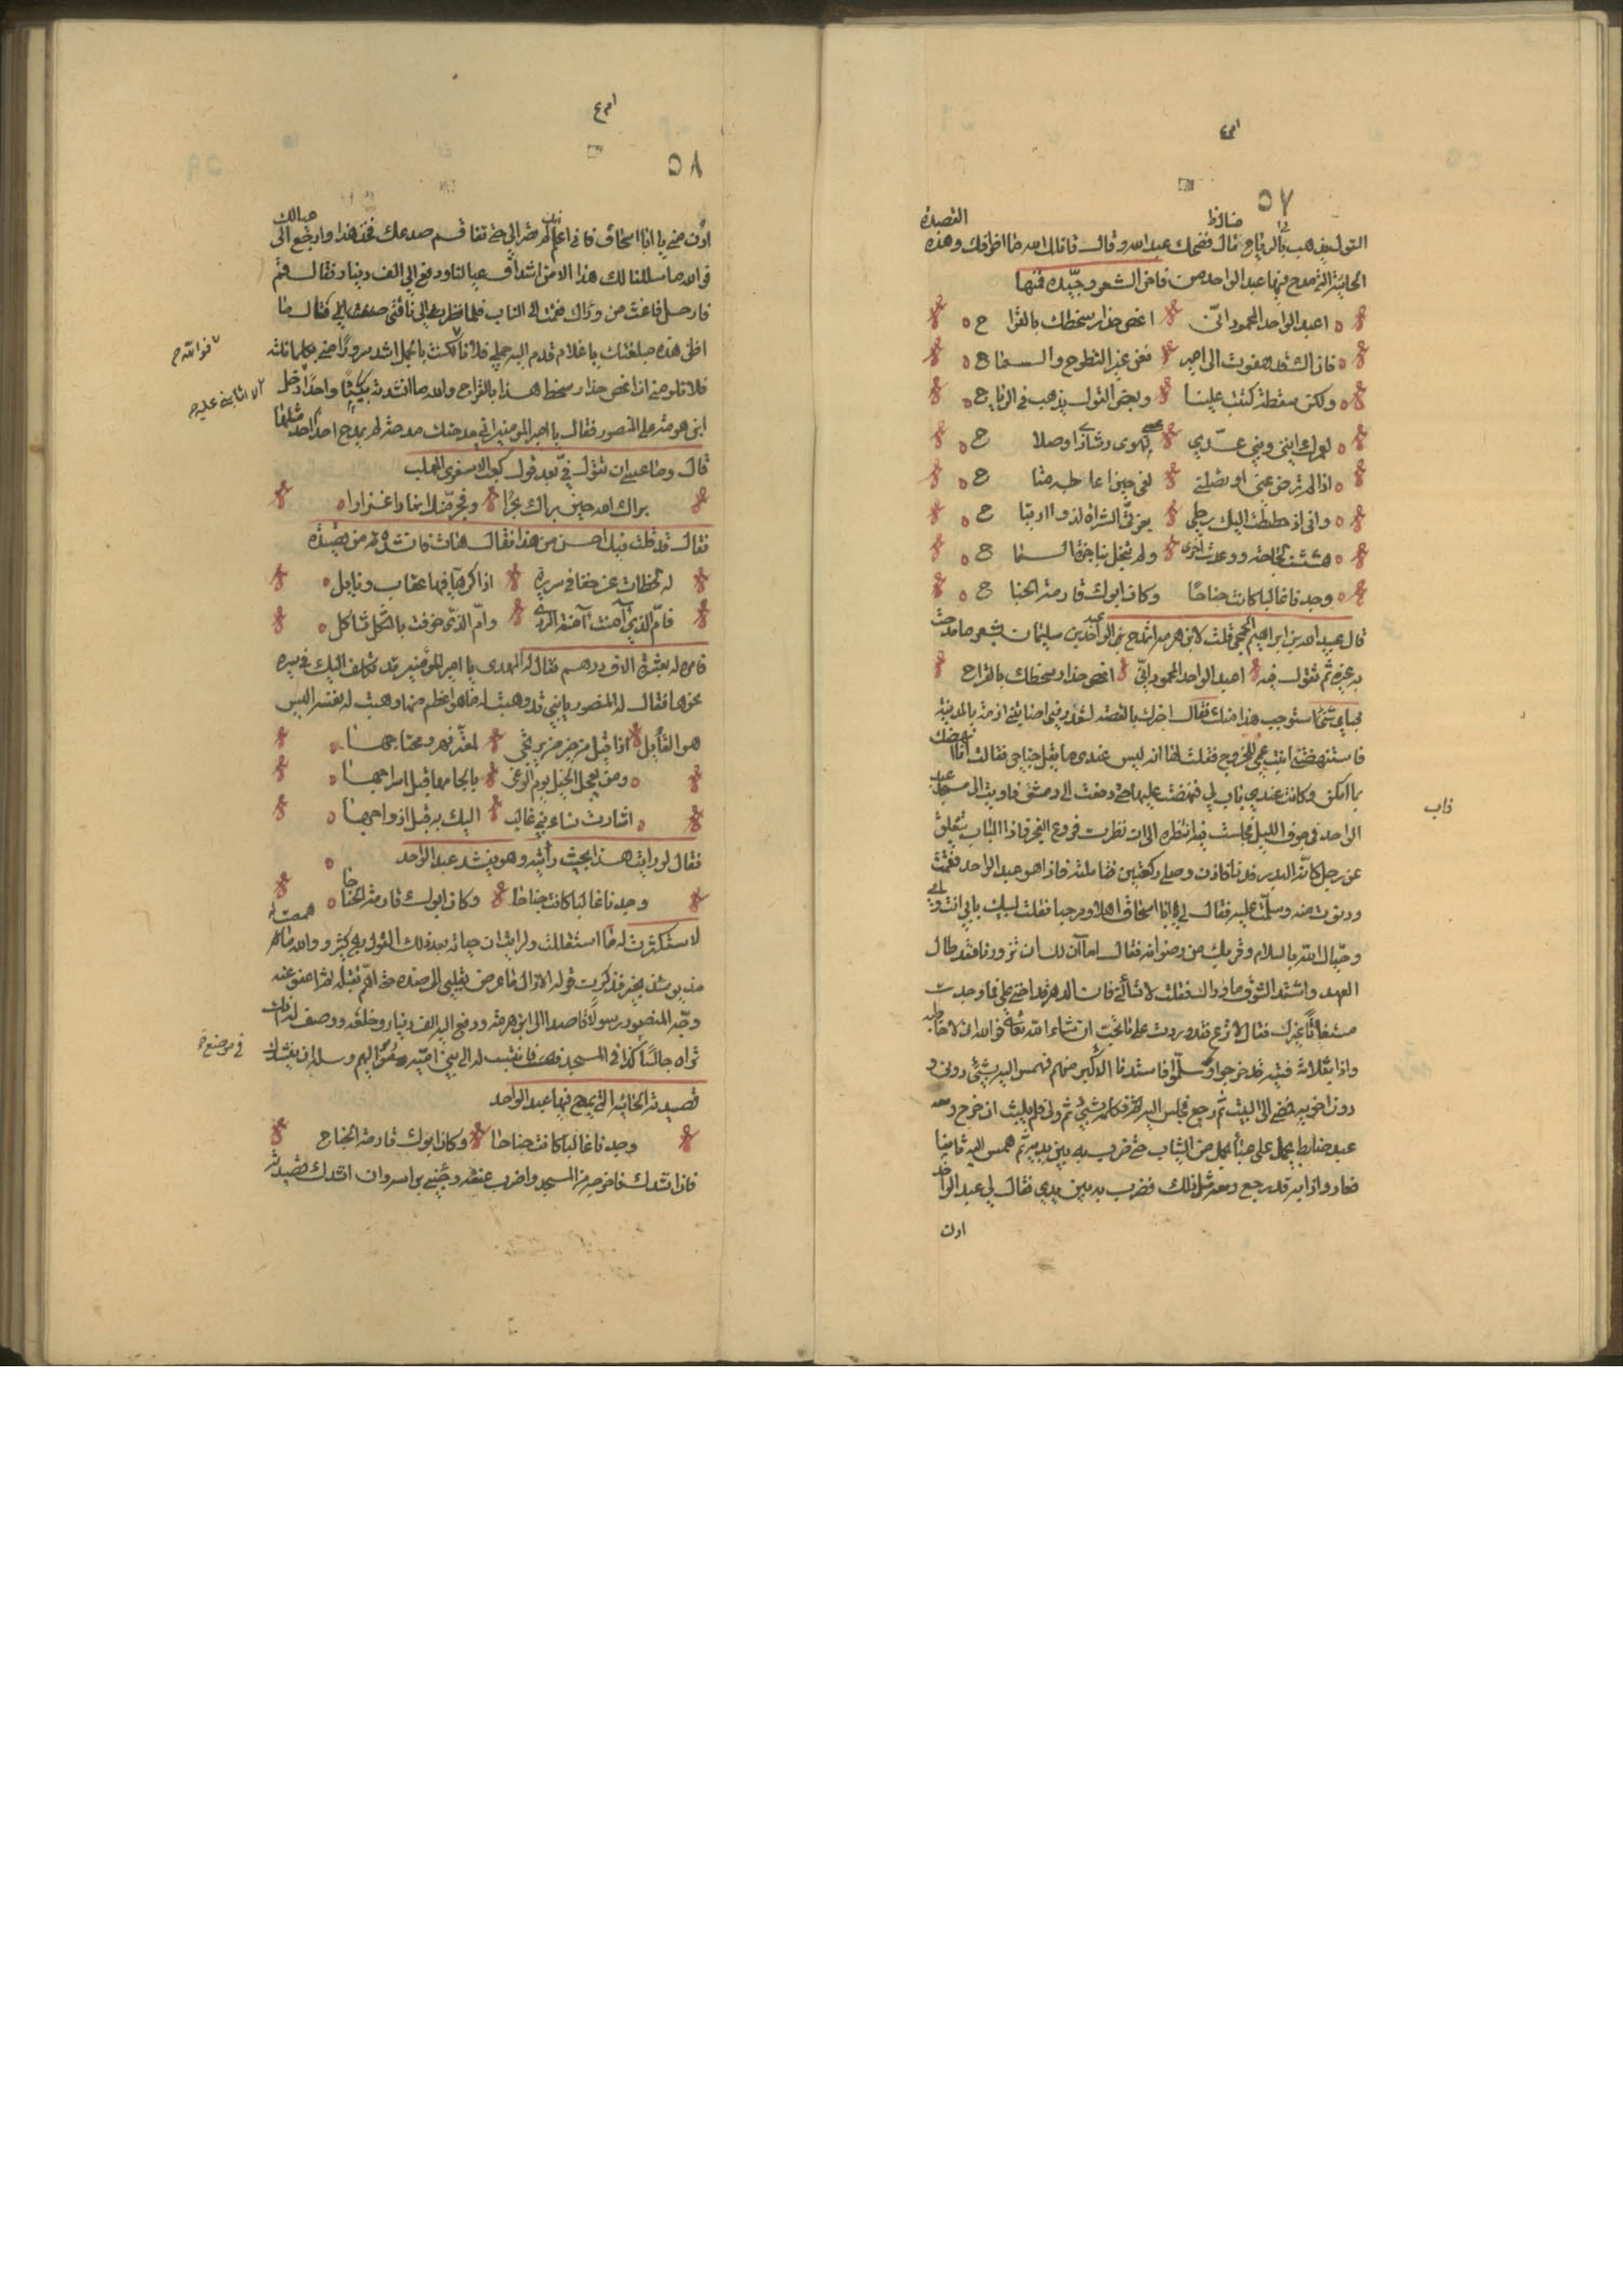 ٥٧
القول يذهب بالرياح قال فضحك عبد الله وقال قاتلك الله ما اظرفك وهذه القصيدة
الحائية التي مدح فيها عبد الواحد من فاخر الشعر وجيده فمنها
اعبد الواحد المحمود اني اغص حذار سخطك بالقراح
فان الك قد هفوت الى امير فعن غير التطوح والسماح
ولكن سقطة كتبت علينا وبعض القول يذهب في الرياح
لعمرك انني وبني عدي
اذا لم ترض عني او تصلني لفي حين اعالجه متاح
واني اذ حططت اليك رحلي
هششت لحاجة ووعدت اخرى ولم تبخل بناجزة السراح
وجدنا غالبا كانت جناحا وكان ابوك قادمة الجناح
قال عبيد الله بن ابراهيم الجمحي قلت لابن هرمة اتمدح عبد الواحد بن سليمان بشعر ما مدحت
به غيره ثم تقول فيه اعبد الواحد المحمود اني اغص حذار سخطك بالقراح
فباي شئ استوجب هذا منك فقال اخبرك بالقصة لتعذرني اصابتني ازمة بالمدينة
فاستنهضتني ابنة عمي للخروج فقلت لها انه ليس عندي ما يقل جناحي فقالت انا انهضك
بما امكن وكانت عندي ناب لي فنهضت عليها حتى دفعت الى دمشق فاويت الى مسجد عبد
الواحد في جوف الليل فجلست فيه انتظره الى ان نظرت بزوغ الفجر فاذا الباب ينفلق
عن رجل كانه البدر فدنا فاذن وصلى ركعتين فتاملته فاذا هو عبد الواحد فقمت
ودنوت منه وسلمت عليه فقال لي ابا اسحاق اهلا ومرحبا فقلت لبيك بابي انت وامي
وحياك الله بالسلام وقربك من رضوانه فقال اما آن لك ان تزورنا فقد طال
العهد واشتد الشوق فما وراءك فقلت لا تسألني فان الدهر قد اخنى علي فما وجدت
مستغاثا غيرك فقال لا ترع فقد وردت على ما تحب ان شاء الله تعالى فوالله اني لاخاطبه
واذا بثلاثة فتية قد خرجوا وسلموا فاستدنا الاكبر منهم فهمس اليه بشئ دوني و
دون اخويه فمضى الى البيت ثم رجع فجلس اليه فكلمه بشئ ثم ولى فلم يلبث ان خرج ومعه
عبد ضابط يحمل عبأ من الثياب حتى ضرب به بين يديه ثم همس اليه ثانية
فعاد واذا به قد رجع ومعه مثل ذلك فضرب به بين يدي فقال لي عبد الواحد
ادن
٥٨
ادن مني يا ابا اسحاق فاني اعلم انك لم تصر الي حتى تفاقم صدعك فخذ هذا وارجع الى عيالك
فوالله ما سللنا لك هذا الا من اشداق عيالنا ودفع الي الف دينار فقال قم
فارحل فاغث من وراك فقمت الى الباب فلما نظرت الى ناقتي ضقت فقال ما
اظن هذه مبلغتك يا غلام قدم اليه جملي فلانا فكنت بالجمل اشد سرورا مني بكل ما نلته
فلا تلومني ان اغص حذار سخط هذا بالقراح والله ما انشدته بيتا واحدا دخل
ابن هرمة على المنصور فقال يا امير المؤمنين اني مدحتك مدحة لم يمدح احد احدا مثلها
قال وما عسى ان تقول في بعد قول كعب الاشقري المهلب
براك الله حين براك بحرا وفجر منك انهارا غزارا
فقال قد قلت فيك احسن من هذا فقال هات فانشده من قصيدته
له لحظات عن حفافي سريره اذا كرها فيها عقاب ونايل
فام الذي آمنت آمنة الردى وام الذي خوفت بالثكل ثاكل
فامر له بعشرة الاف درهم فقال له المهدي يا امير المؤمنين قد تكلف اليك في سيره
نحوها فقال له المنصور يا بني قد وهبت له ما هو اعظم منها وهبت له نفسه اليس
هو القايل اذا قيل من خير من يرتجي لمعتر فهر ومحتاجها
ومن يعجل الخيل يوم الوغى بالجامها قبل اسراجها
اشارت نساء بني غالب اليك به قبل ازواجها
فقال لو رايت هذا بحيث رأيته وهو ينشد عبد الواحد
وجدنا غالبا كانت جناحا وكان ابوك قادمة الجناحا
وجه المنصور رسولا قاصدا الى ابن هرمة ودفع اليه الف دينار وخلعة ووصفه له
تراه جالسا كذا في المسجد فانتسب له الى بني امية وسله ان ينشدك
قصيدته الحائية التي يمدح فيها عبد الواحد
وجدنا غالبا كانت جناحا وكان ابوك قادمة الجناح
فاذا انشدك فاخرجه من المسجد واضرب عنقه وجئني براسه وان انشدك قصيدته